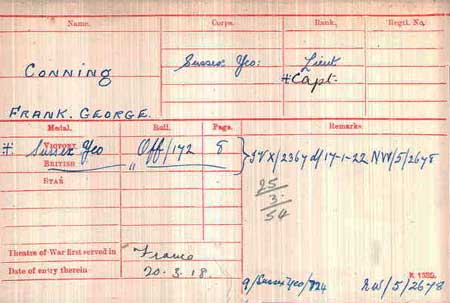 Name. Corps. Rank. Regtl. No.
Conning Sussex Yeo: Lieut
* Capt.
FRANK. GEORGE.
Medal. Roll. Page. Remarks.
* VICTORY Sussex Yeo Off/172 8 IVX/2367 d/17-1-22 NW/5/2678
BRITISH "
STAR
25
3.
54
Theatre of War first served in France
Date of entry therein 20.3.18.
K 1380.
9/Sussex Yeo/824 NW/5/2678